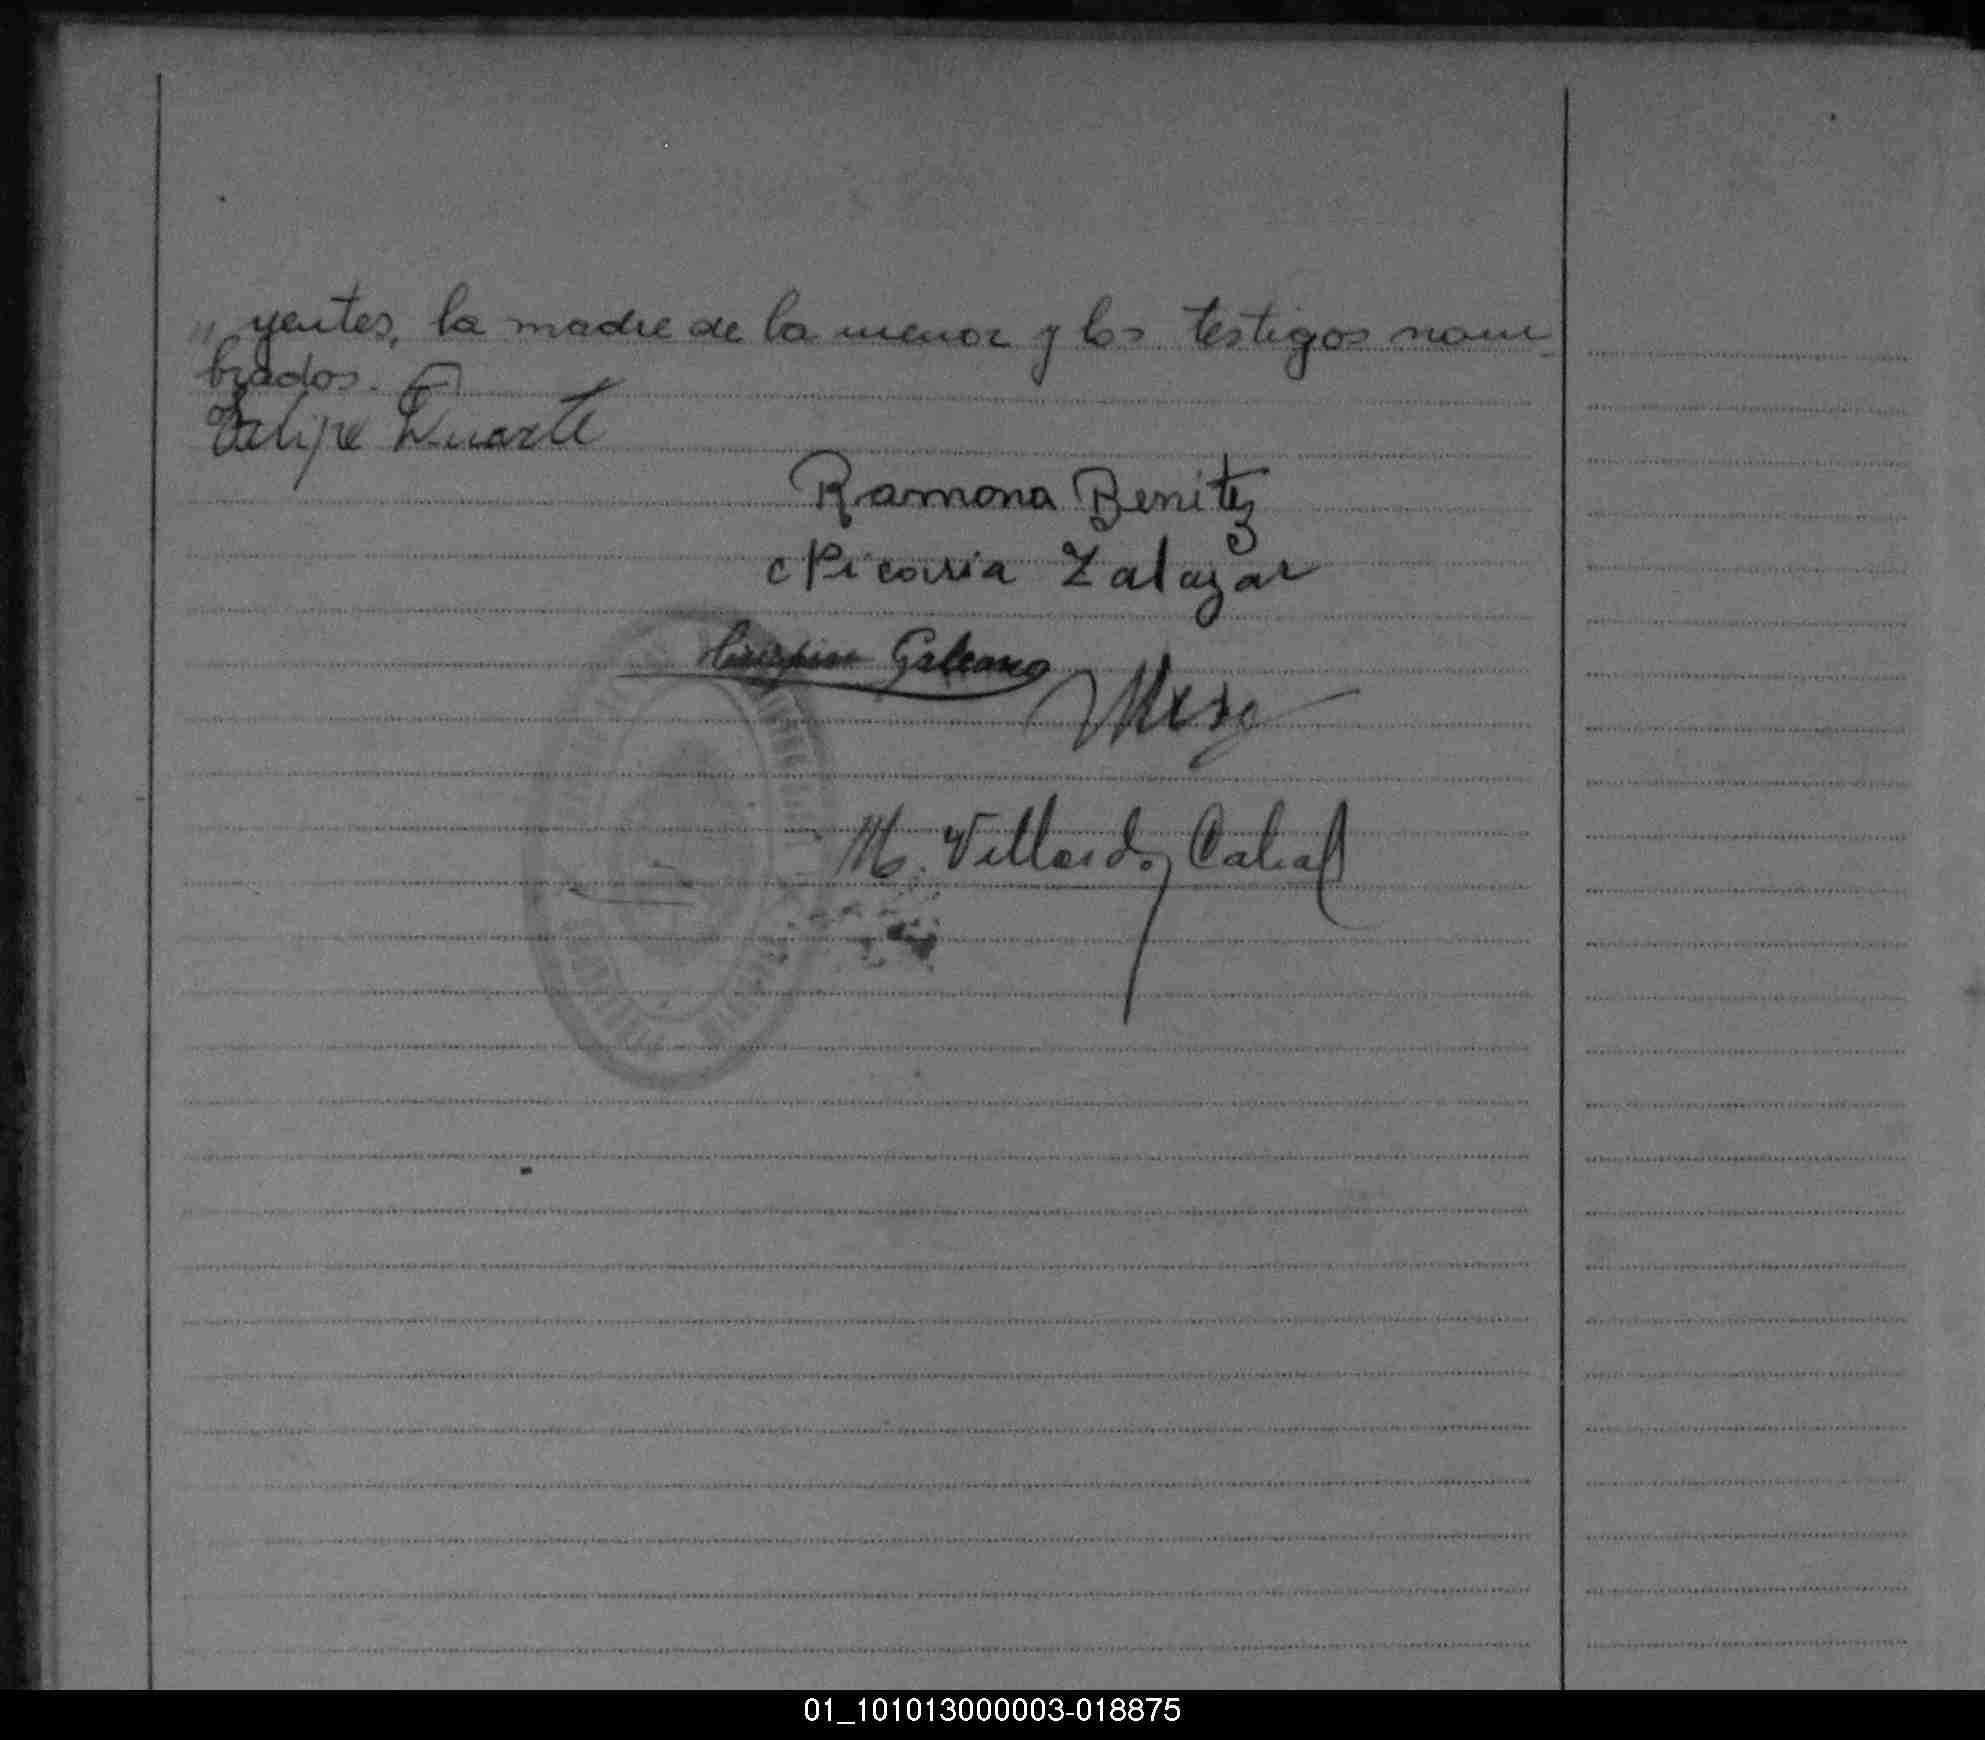 " yentes, la madre de la menor y los testigos nom-
brados.
Felipe Duarte
Ramona Benitez
Picasia Zalazar
Galeano
M. Villordo Cabral
01_101013000003-018875